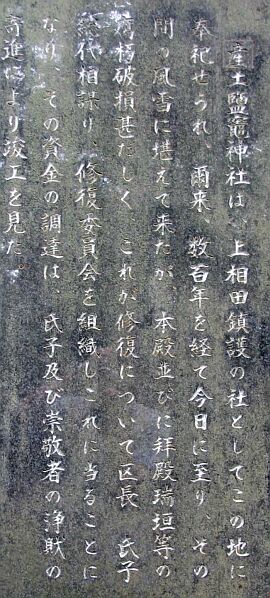 産土鹽竈神社は、上相田鎮護の社としてこの地に
奉祀せられ、爾来、数百年を経て今日に至り、その
間の風雪に堪えて来たが、本殿並びに拝殿瑞垣等の
腐朽破損甚だしく、これが修復について区長　氏子
総代相謀り、修復委員会を組織しこれに当ることに
なり、その資金の調達は、氏子及び崇敬者の浄財の
寄進により竣工を見た。